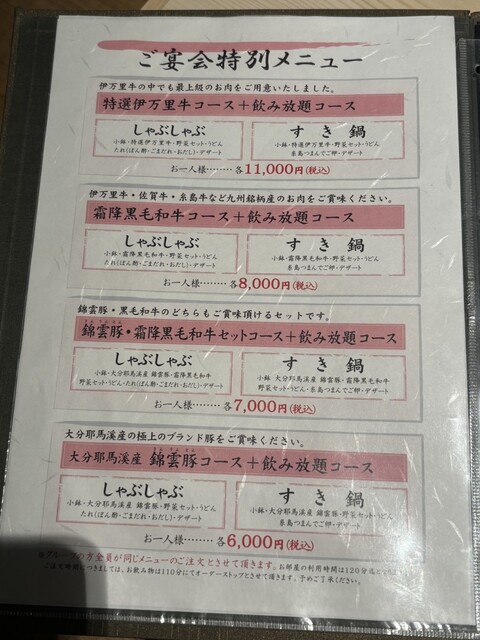 ご宴会特別メニュー
伊万里牛の中でも最上級のお肉をご用意いたしました。
特選伊万里牛コース＋飲み放題コース
しゃぶしゃぶ
小鉢・特選伊万里牛・野菜セット・うどん
たれ（ぽん酢・ごまだれ・おだし）・デザート
すき鍋
小鉢・特選伊万里牛・野菜セット・うどん
糸島つまんでご卵・デザート
お一人様‥‥‥‥各11,000円（税込）
伊万里牛・佐賀牛・糸島牛など九州銘柄産のお肉をご賞味ください。
霜降黒毛和牛コース＋飲み放題コース
しゃぶしゃぶ
小鉢・霜降黒毛和牛・野菜セット・うどん
たれ（ぽん酢・ごまだれ・おだし）・デザート
すき鍋
小鉢・霜降黒毛和牛・野菜セット・うどん
糸島つまんでご卵・デザート
お一人様‥‥‥‥各8,000円（税込）
錦雲豚・黒毛和牛のどちらもご賞味頂けるセットです。
錦雲豚・霜降黒毛和牛セットコース＋飲み放題
しゃぶしゃぶ
小鉢・大分耶馬溪産 錦雲豚・霜降黒毛和牛
野菜セット・うどん・たれ（ぽん酢・ごまだれ・おだし）・デザート
すき鍋
小鉢・大分耶馬溪産 錦雲豚・霜降黒毛和牛
野菜セット・うどん・糸島つまんでご卵・デザート
お一人様‥‥‥‥各7,000円（税込）
大分耶馬溪産の極上のブランド豚をご賞味ください。
大分耶馬溪産 錦雲豚コース＋飲み放題コース
しゃぶしゃぶ
小鉢・大分耶馬溪産 錦雲豚・野菜セット・うどん
たれ（ぽん酢・ごまだれ・おだし）・デザート
すき鍋
小鉢・大分耶馬溪産 錦雲豚・野菜セット・うどん
糸島つまんでご卵・デザート
お一人様‥‥‥‥各6,000円（税込）
グループの方全員が同じメニューのご注文とさせて頂きます。お部屋の利用時間は120分迄と
ご注文時間につきましては、お飲み物は110分にてオーダーストップとさせて頂きます。予めご了承ください。